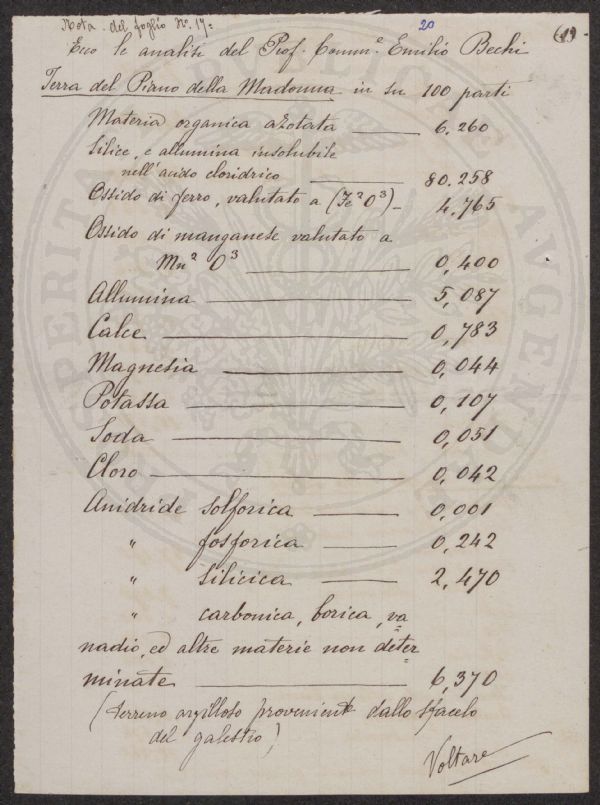 Nota del foglio Nº. 17=
20
(19)
Ecco le analisi del Prof. Comm.e Emilio Bechi
Terra del Piano della Madonna in su 100 parti
Materia organica azotata 6,260
Silice, e allumina insolubile
nell'acido cloridrico 80.258
Ossido di ferro, valutato a (Fe²O³) 4,765
Ossido di manganese valutato a
Mn² O³ 0,400
Allumina 5,087
Calce 0,783
Magnesia 0,044
Potassa 0,107
Soda 0,051
Cloro 0,042
Anidride solforica 0,001
" fosforica 0,242
" silicica 2,470
" carbonica, borica, va=
nadio, ed altre materie non deter=
minate 6,370
(terreno argilloso proveniente dallo sfacelo
del galestro)
Voltare